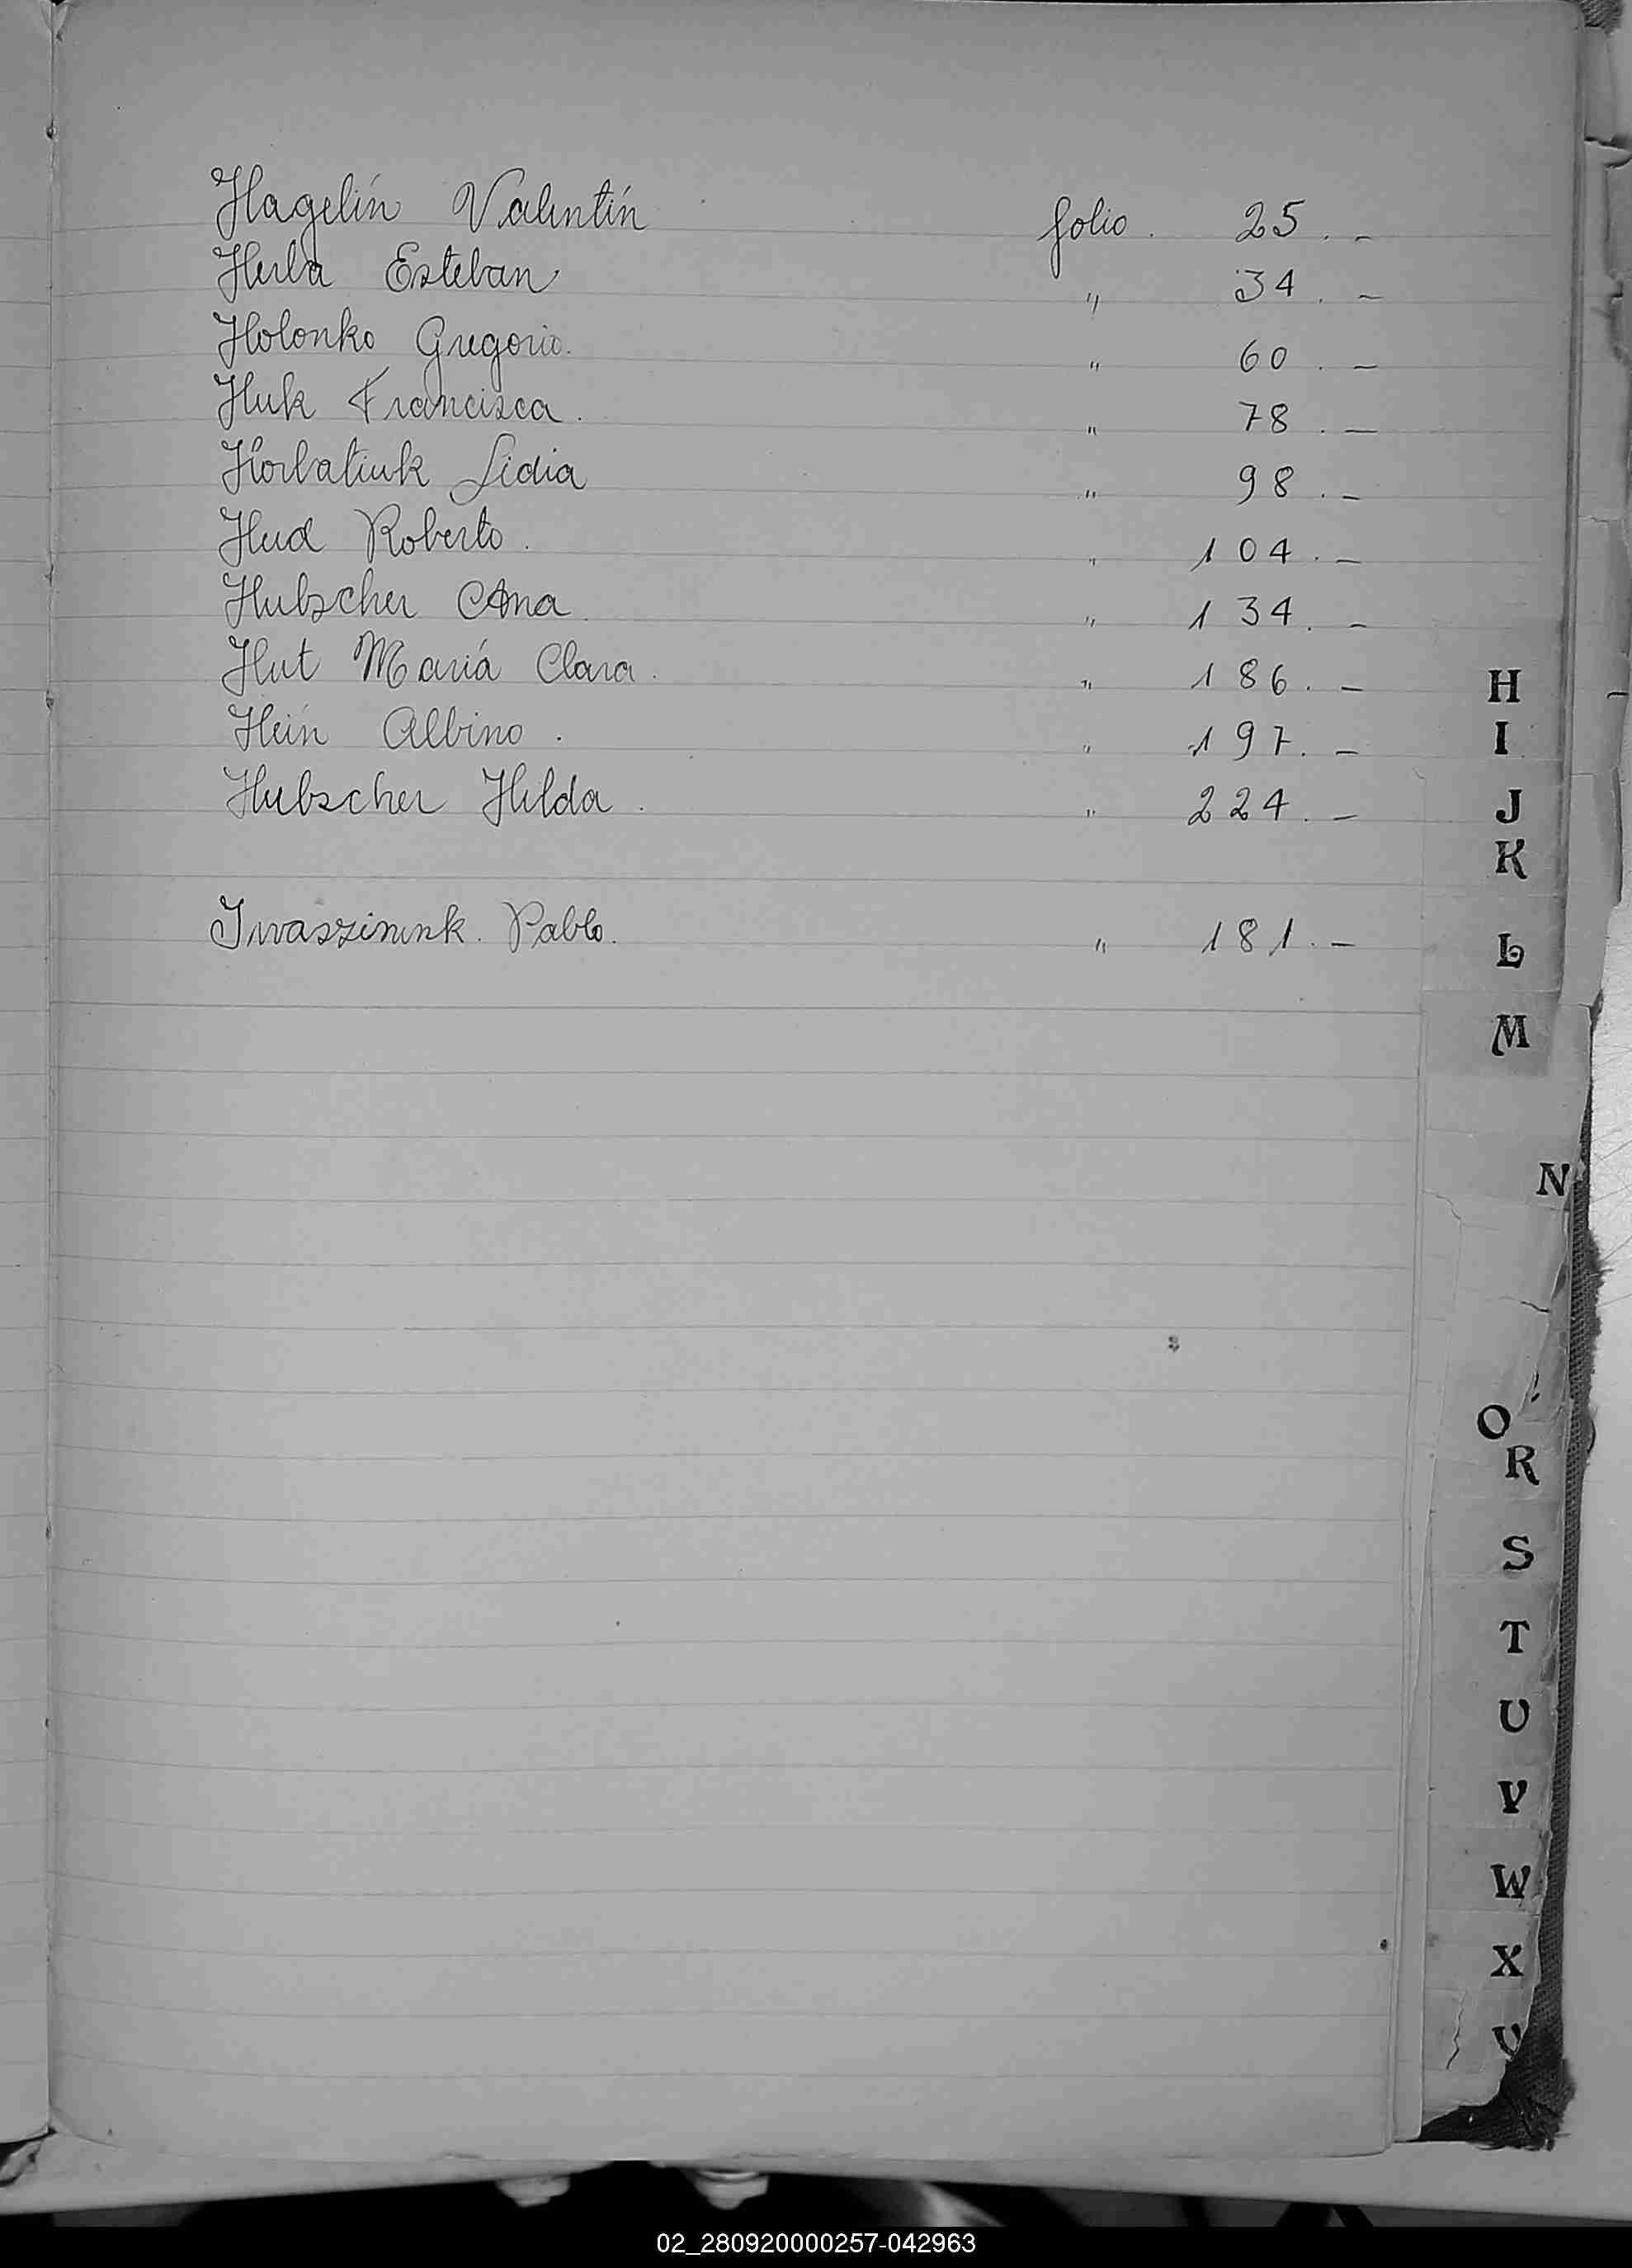 Hagelín Valentín folio . 25 . -
Herba Esteban " 34 . -
Holonko Gregorio. " 60 . -
Huk Francisca . " 78 . -
Horbatiuk Lidia " 98 . -
Hud Roberto . " 104 . -
Hubscher Ana . " 134 . -
Hut Mariá Clara . " 186 . -
Hein Albino . " 197 . -
Hubscher Hilda . " 224 . -
Pablo. " 181 . -
H
I
J
K
L
M
N
O
R
S
T
U
V
W
X
02_280920000257-042963